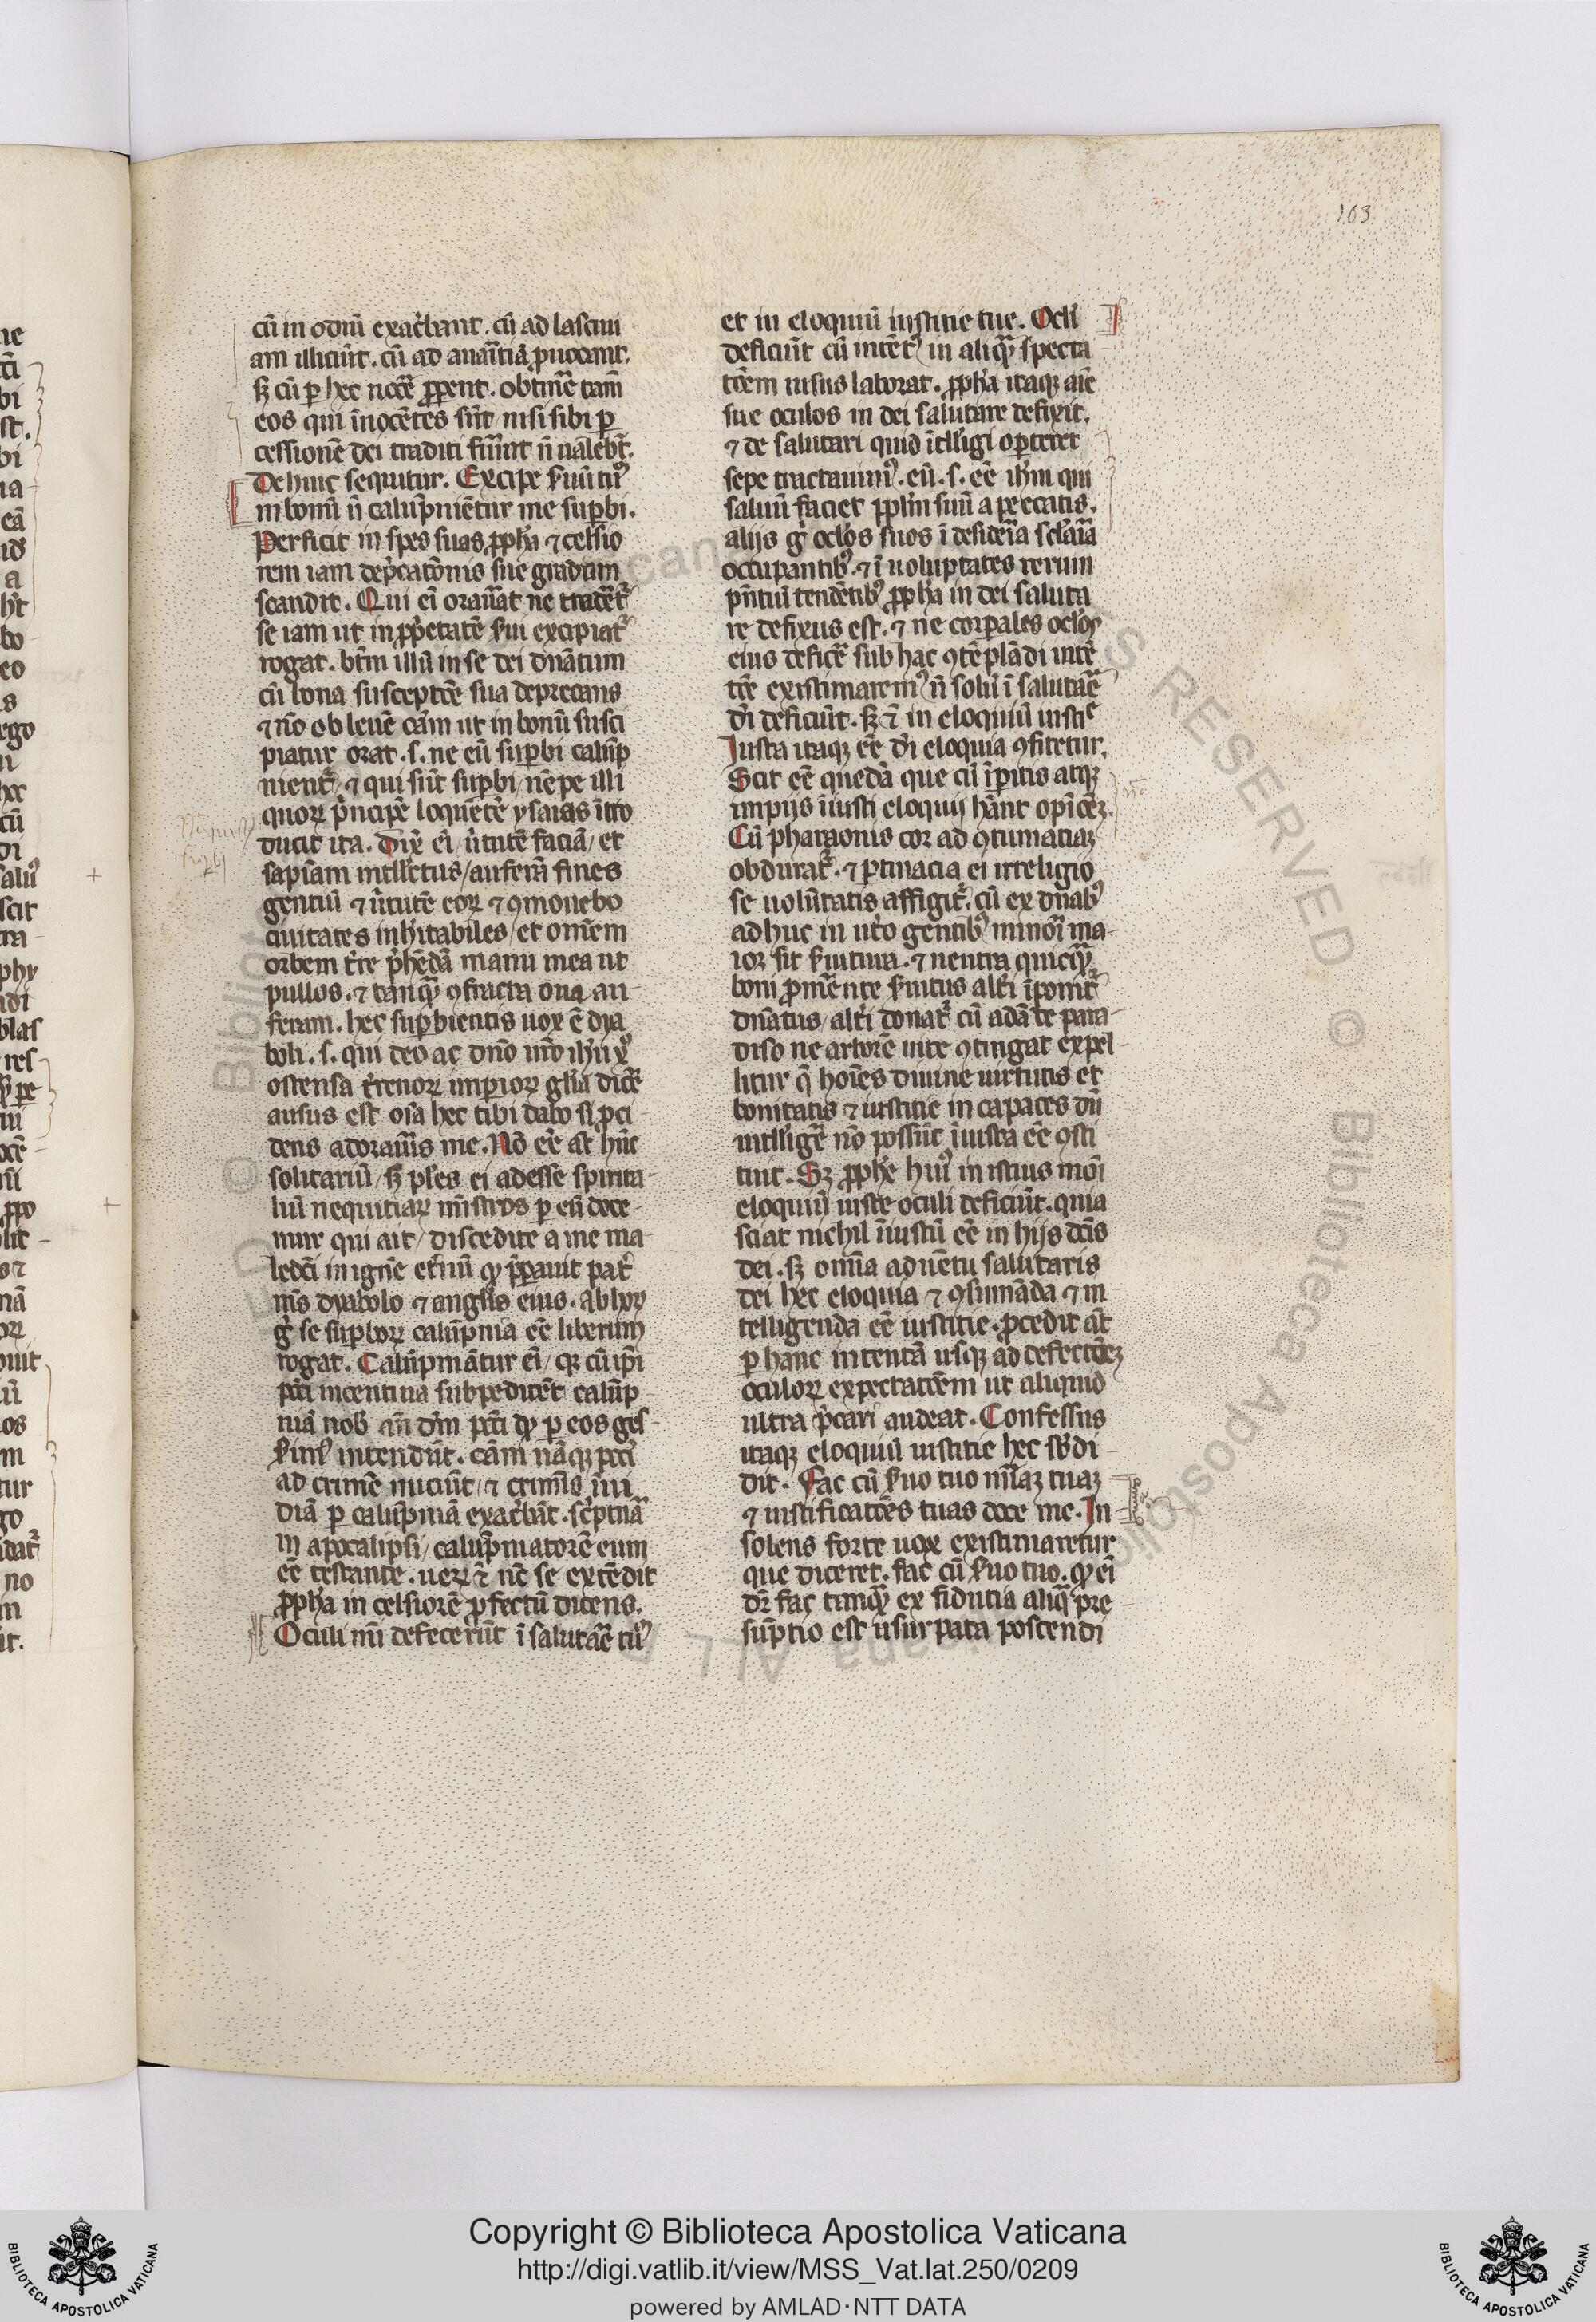 103
cū in odiū exac̾bant. cū ad lasciui
am illiciūt. cū ad auaͥtiā ꝓuocant.
sꝫ cū ꝑ hec nocē ꝓꝑent. obtinē tam̄
eos qui īnocētes sūt nisi sibi ꝑ
cessionē dei traditi fūint n̄ ualebt̄.
Dehinc sequitur. Excipe s̾uū tuꝰ
in bonū n̄ calūpniētur me suꝑbi.
Perficit in spes suas ꝓpha ⁊ celsio
rem iam dep̄catōnis sue gradum
scandit. Qui ei orauāt ne tradet᷑
se iam ut in ꝓp̄etatē s̾ui excipiat᷑
rogat. btm̄ illū in se dei dn̄atum
cū bona susceptōe sua deprecans
⁊ nō ob leuē cām ut in bonū susci
piatur orat. s. ne eū suꝑbi calūp
nient᷑ ⁊ qui sūt suꝑbi / nēpe illi
quoꝝ p̄ncipē loquētē ysaias īt̾o
ducit ita. Dix̄ ei / u̾tutē faciā / et
sapīam intll̄ctus / auferā fines
gentiū ⁊ u̾tutē eoꝝ ⁊ ꝯmouebo
ciuitates inhītabiles / et om̄em
orbem t̾re p̄hēdā manu mea ut
pullos. ⁊ tanqͣꝫ ꝯfracta oua au
feram. hec suꝑbientis uox ē dya
boli. s. qui deo ac dn̄o nr̄o ihū xꝰ
ostensa t̾renoꝝ imꝑioꝝ gl̄ia dicē
ausus est oīa hec tibi dabo si ꝓci
dens adorauīs me. Nō eē aūt hūc
solitariū / sꝫ pl̄es ei adesse spirita
liū nequitiaꝝ mīstros ꝑ eū doce
mur qui ait / discedite a me ma
ledc̄i in ignē et̾nū qͥ p̄parauit pat̾
ms̄ dyabolo ⁊ angl̄is eius. Ab hoꝝ
g̊ se suꝑboꝝ calūpnia eē liberum
rogat. Calūpniātur ei / qꝛ cū ip̄i
pcc̄i incentiua subpeditēt calūp
niā nob̄ an̄ dm̄ pcc̄i qͥ ꝑ eos ges
s̾imꝰ intendūt. cām nāqꝫ pcc̄i
ad crimē niciūt / ⁊ crimīs īui
diā ꝑ calūpniā exac̾bāt. sc̾ptuͣā
in apocalipsi / calūpniatorē eum
eē testante. ueꝝ ē nē se extēdit
ꝓpha in celsiorē ꝓfectū dicens.
Oculi mī defecerūt ī salutaͤ tuū
et in eloquiū iustitie tue. Ocl̄i
deficiūt cū intēt᷑ in aliqͣꝫ specta
tōem uisus laborat. ꝓpha itaqꝫ aīe
sue oculos in dei salutare defixit.
⁊ de salutari quid ītll̄igi oꝑteret
sepe tractauimꝰ. eū. s. eē ihm̄ qui
saluū faciet ppl̄m suū a peccatis.
alijs g̊ ocl̄os suos ī desideͥa sclāia
occupantibꝰ. ⁊ ī uoluptates rerum
pn̄tiū tendētibꝰ ꝓpha in dei saluta
re defixus est. ⁊ ne corꝑales ocl̄os
eius deficē sub hac ꝯtēplādi intē
tōe existimaremꝰ n̄ solū ī salutaͤ
dī deficiūt. sꝫ ⁊ in eloquiū iustiͤ
Justa itaqꝫ eē dī eloquia ꝯfitetur.
Scit eē quedā que cū īpitis atqꝫ
impijs īiusti eloquij hān̄t opiōēꝫ.
Cū pharaonis cor ad ꝯtumaciaꝫ
obdurat᷑. ⁊ ꝑtinacia ei irreligio
se uolūtatis affigit᷑. cū ex duabꝰ
adhuc in ut̾o gentibꝰ minoͥ ma
ior fit s̾uitura. ⁊ neutra quicqͣꝫ
boni ꝓm̄ente s̾uitus alt̾i īponit᷑
dn̄atus / alt̾i donat᷑ cū adā de para
diso ne arborē uite ꝯtingat expel
litur qͥ hoīes diuine uirtutis et
bonitatis ⁊ iustitie in capaces dū
intll̄igē nō possūt īiusta eē ꝯsti
tuit. Sꝫ ꝓphe huiꝰ in istius mōi
eloquiū iuste oculi deficiūt. quia
sciat nichil īiustū eē in hijs dc̄is
dei. sꝫ om̄ia aduētu salutaris
dei hec eloquia ⁊ ꝯsumāda ⁊ in
telligenda eē iustitie. ꝓcedit aūt
ꝑ hanc intentā usqꝫ ad defectōeꝫ
oculoꝝ expectatōem ut aliquid
ultra p̄cari audeat. Confessus
itaqꝫ eloquiū iustitie hec sb̄di
dit. Fac cū s̾uo tuo mīaꝫ tuaꝫ
⁊ iustificatōes tuas doce me. In
solens forte uox existimaretur
que diceret. fac cū s̾uo tuo. qͥ ei
dr̄ fac tanqͣꝫ ex fiducia aliqͣ pre
sūptio est usurpata poscendi
Copyright © Biblioteca Apostolica Vaticana
http://digi.vatlib.it/view/MSS_Vat.lat.250/0209
powered by AMLAD·NTT DATA